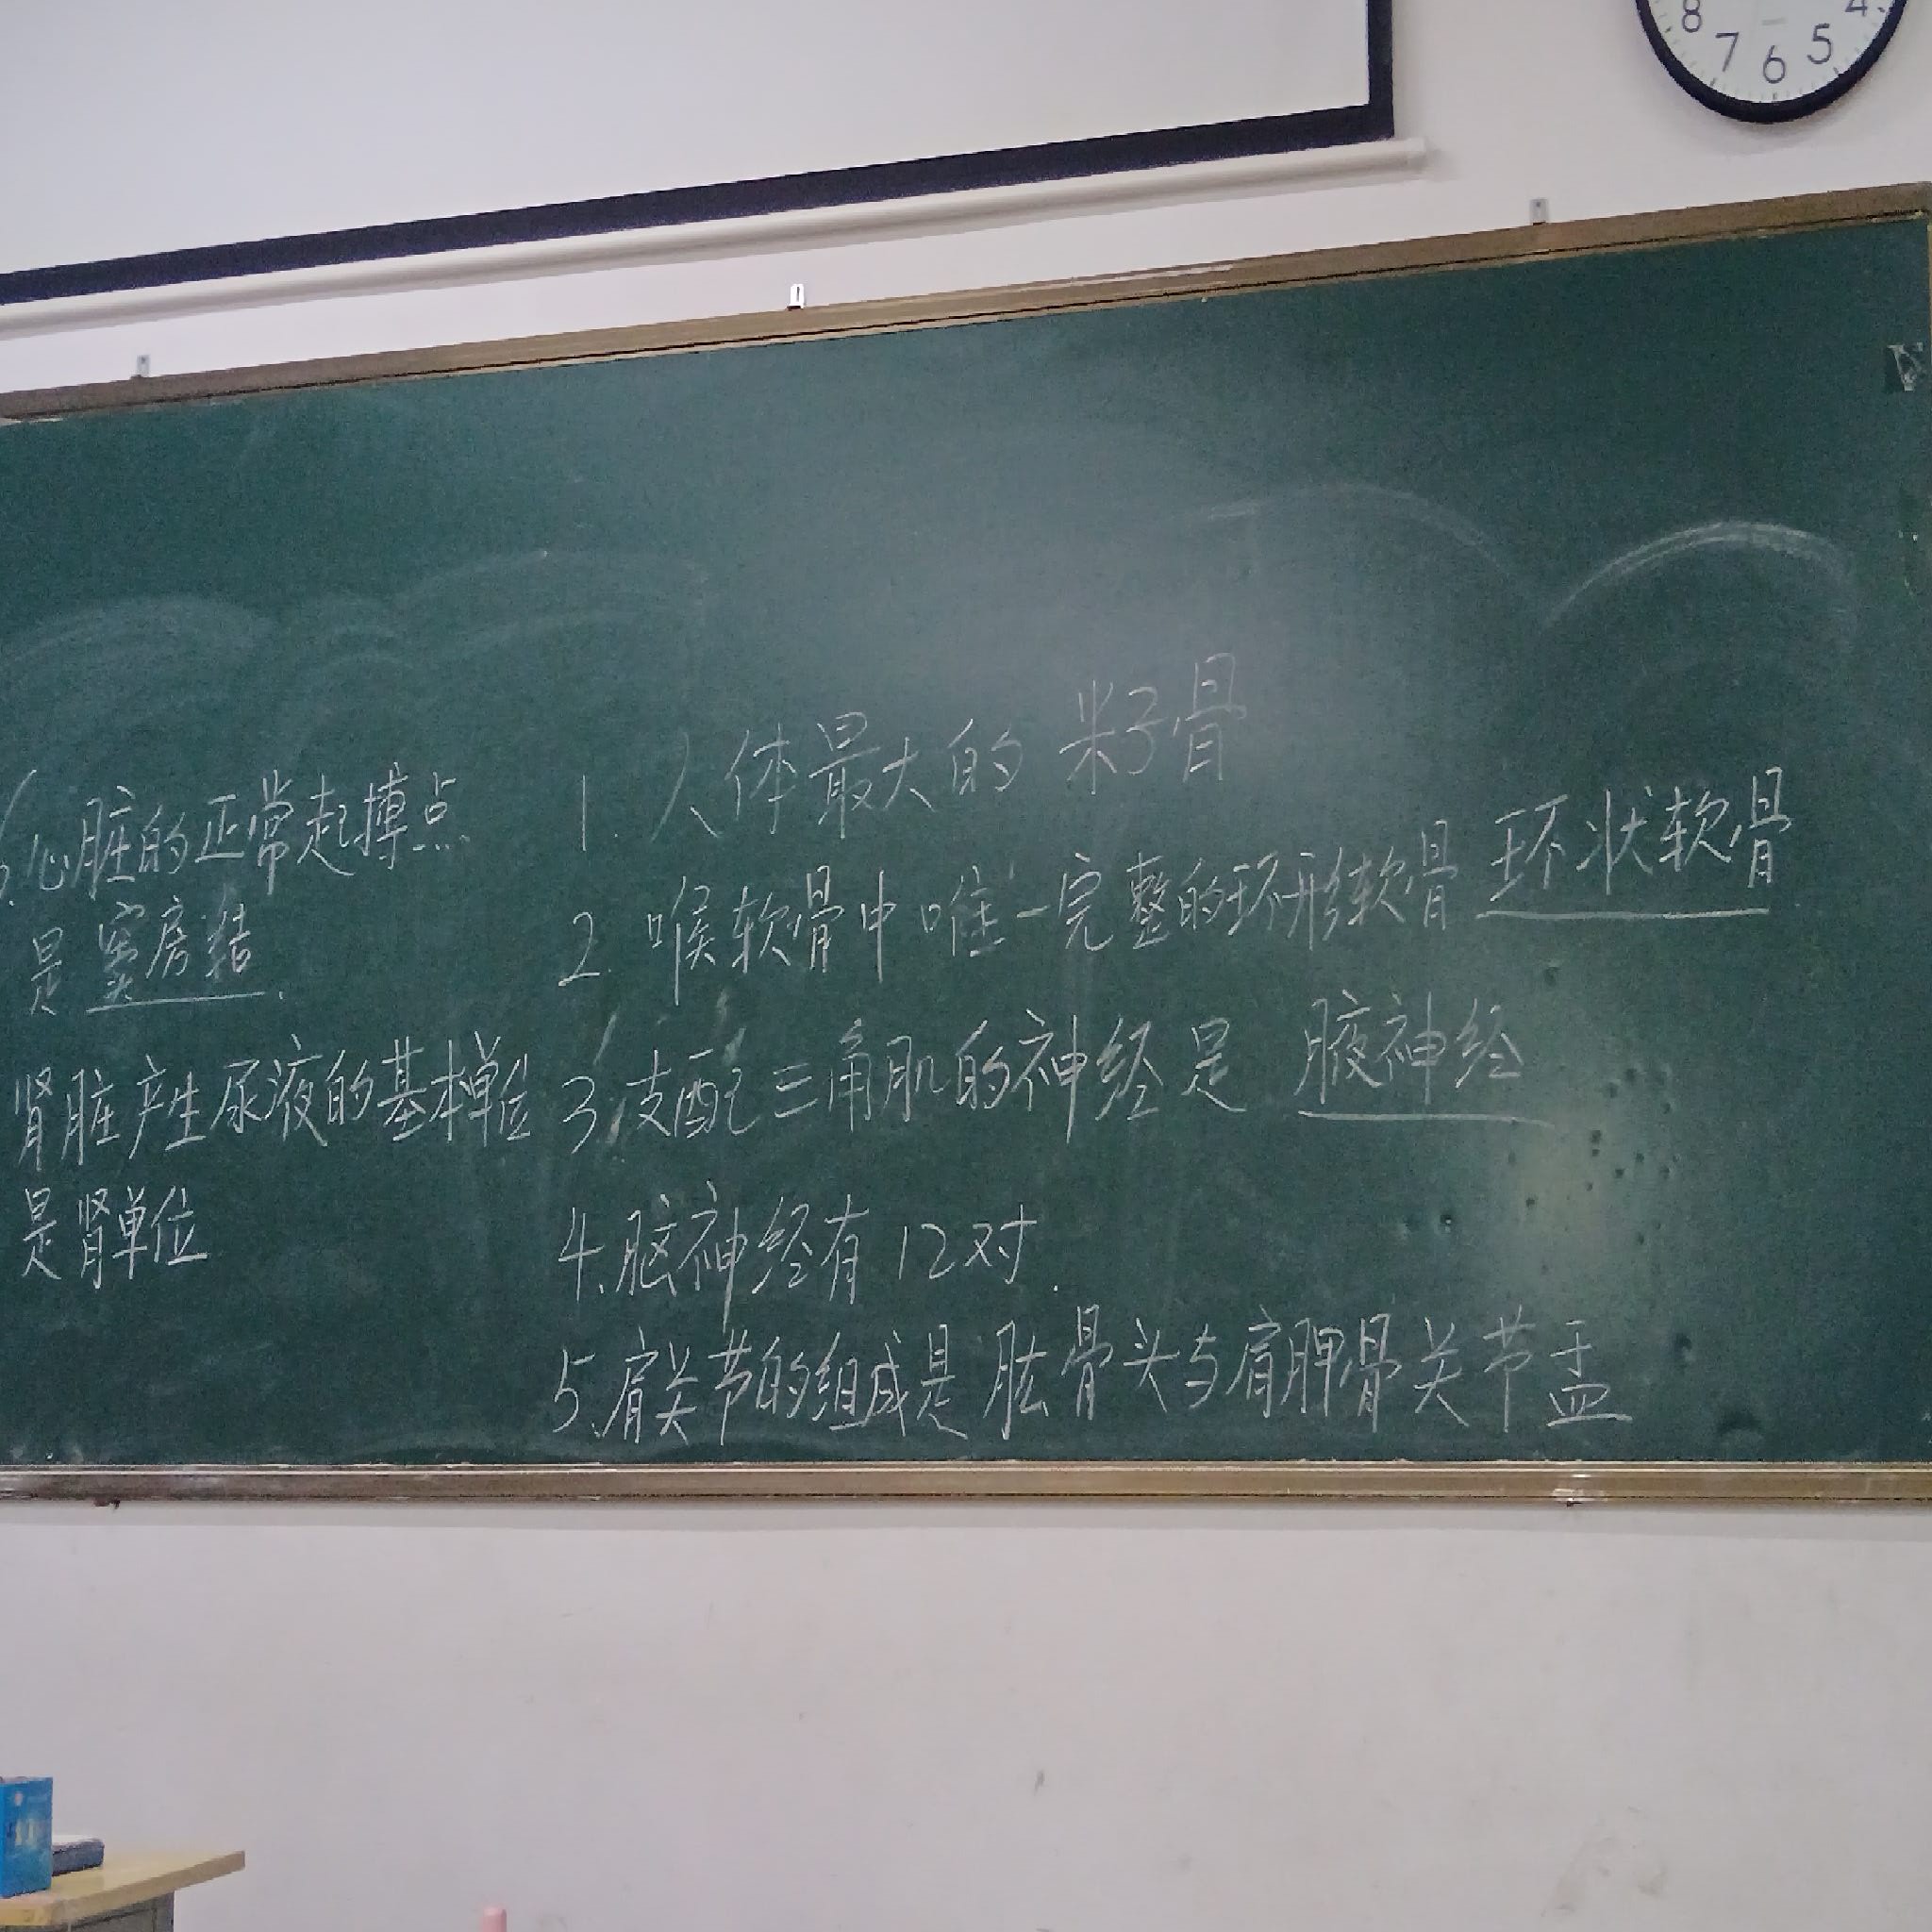 1. 人体最大的 籽骨
2. 喉软骨中唯一完整的环形软骨 环状软骨
3. 支配三角肌的神经是 腋神经
4. 脑神经有12对.
5. 肩关节的组成是 肱骨头与肩胛骨关节盂
6. 心脏的正常起搏点
是 窦房结.
肾脏产生尿液的基本单位
是肾单位
8
7
6
5
4